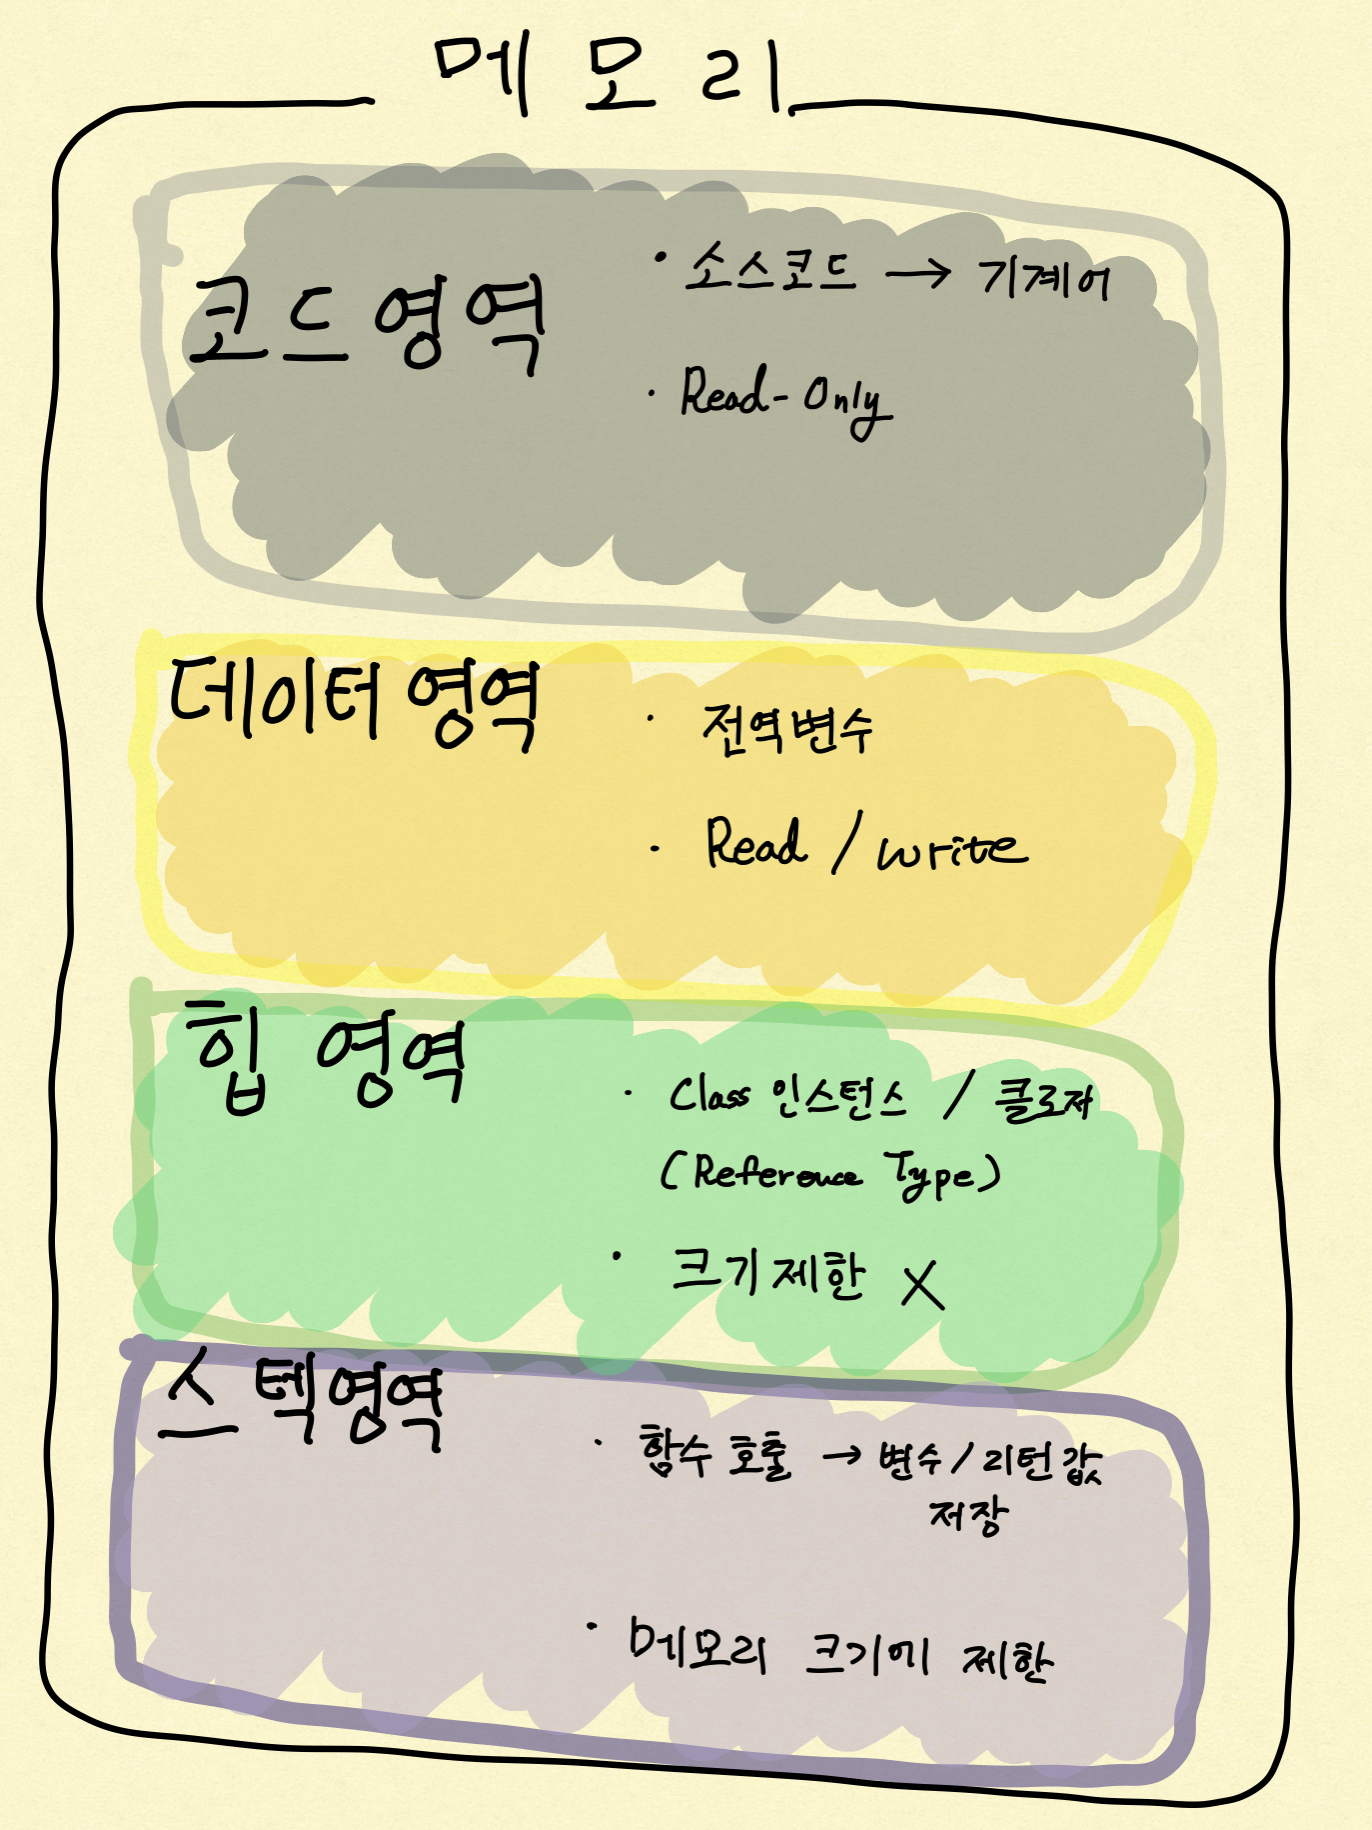 메모리
코드영역
· 소스코드 → 기계어
· Read-Only
데이터 영역
· 전역변수
· Read / write
힙 영역
· Class 인스턴스 / 클로저
(Reference Type)
· 크기제한 X
스택영역
· 함수 호출 → 변수/리턴값
저장
· 메모리 크기에 제한